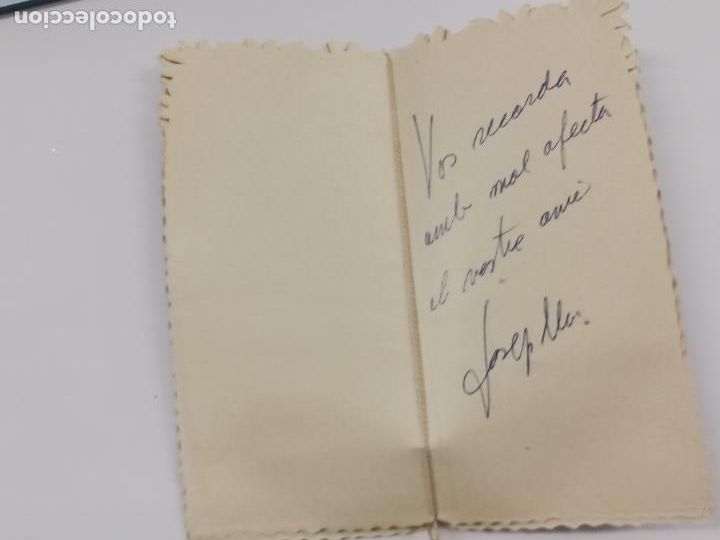 todocoleccion
Vos recorda
amb mol afecta
el vostre amic
Josep